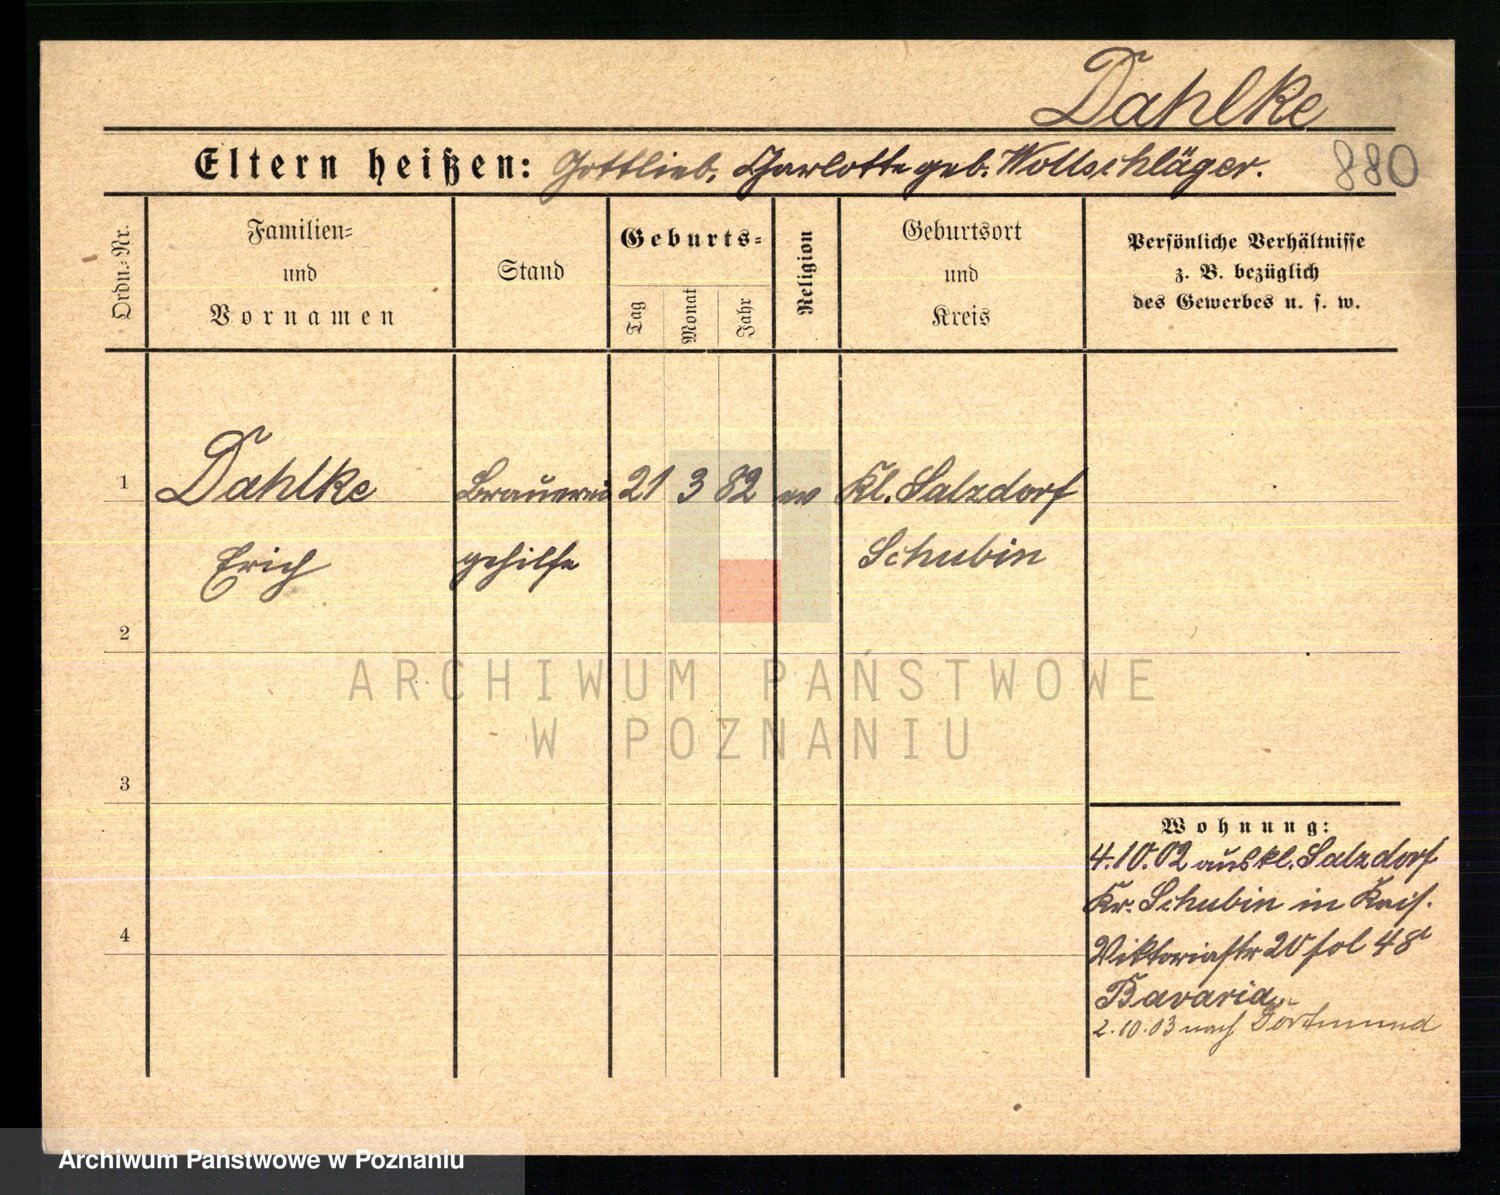 Dahlke
Eltern heißen: Gottlieb, Charlotte geb. Wollschläger. 880
Ordn.-Nr.
Familien-
und
Vornamen
Stand
Geburts-
Tag
Monat
Jahr
Religion
Geburtsort
und
Kreis
Persönliche Verhältnisse
z. B. bezüglich
des Gewerbes u. s. w.
1 Dahlke Brauerei 21 3 82 ev Kl. Salzdorf
Erich gehilfe Schubin
2
3
4
Wohnung:
4.10.02 aus Kl. Salzdorf
Kr. Schubin in Kais.
Viktoriastr 20
Bavaria
2.10.03 nach Dortmund
ARCHIWUM PAŃSTWOWE
W POZNANIU
Archiwum Państwowe w Poznaniu